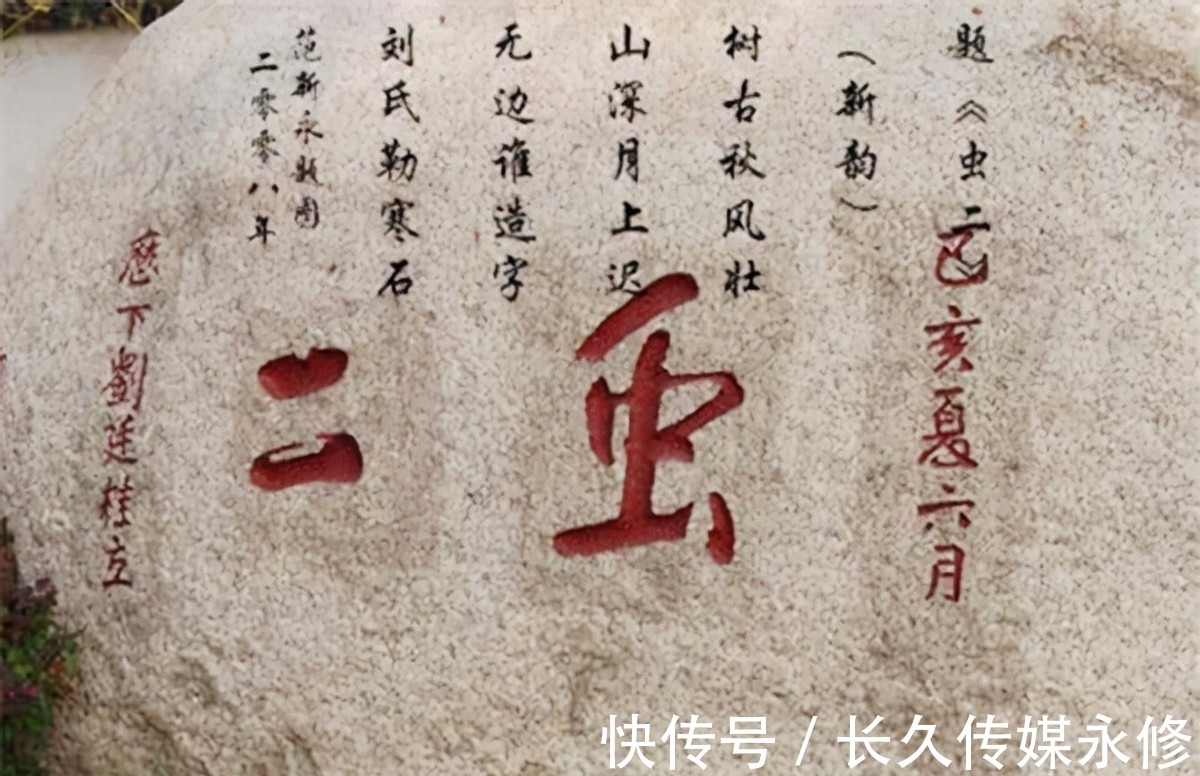 题《虫二》
（新韵）
树古秋风壮
山深月上迟
无边谁造字
刘氏勒寒石
范新永题图
二零零八年
己亥夏六月
虫二
歷下劉廷桂立
快传号 / 长久传媒永修